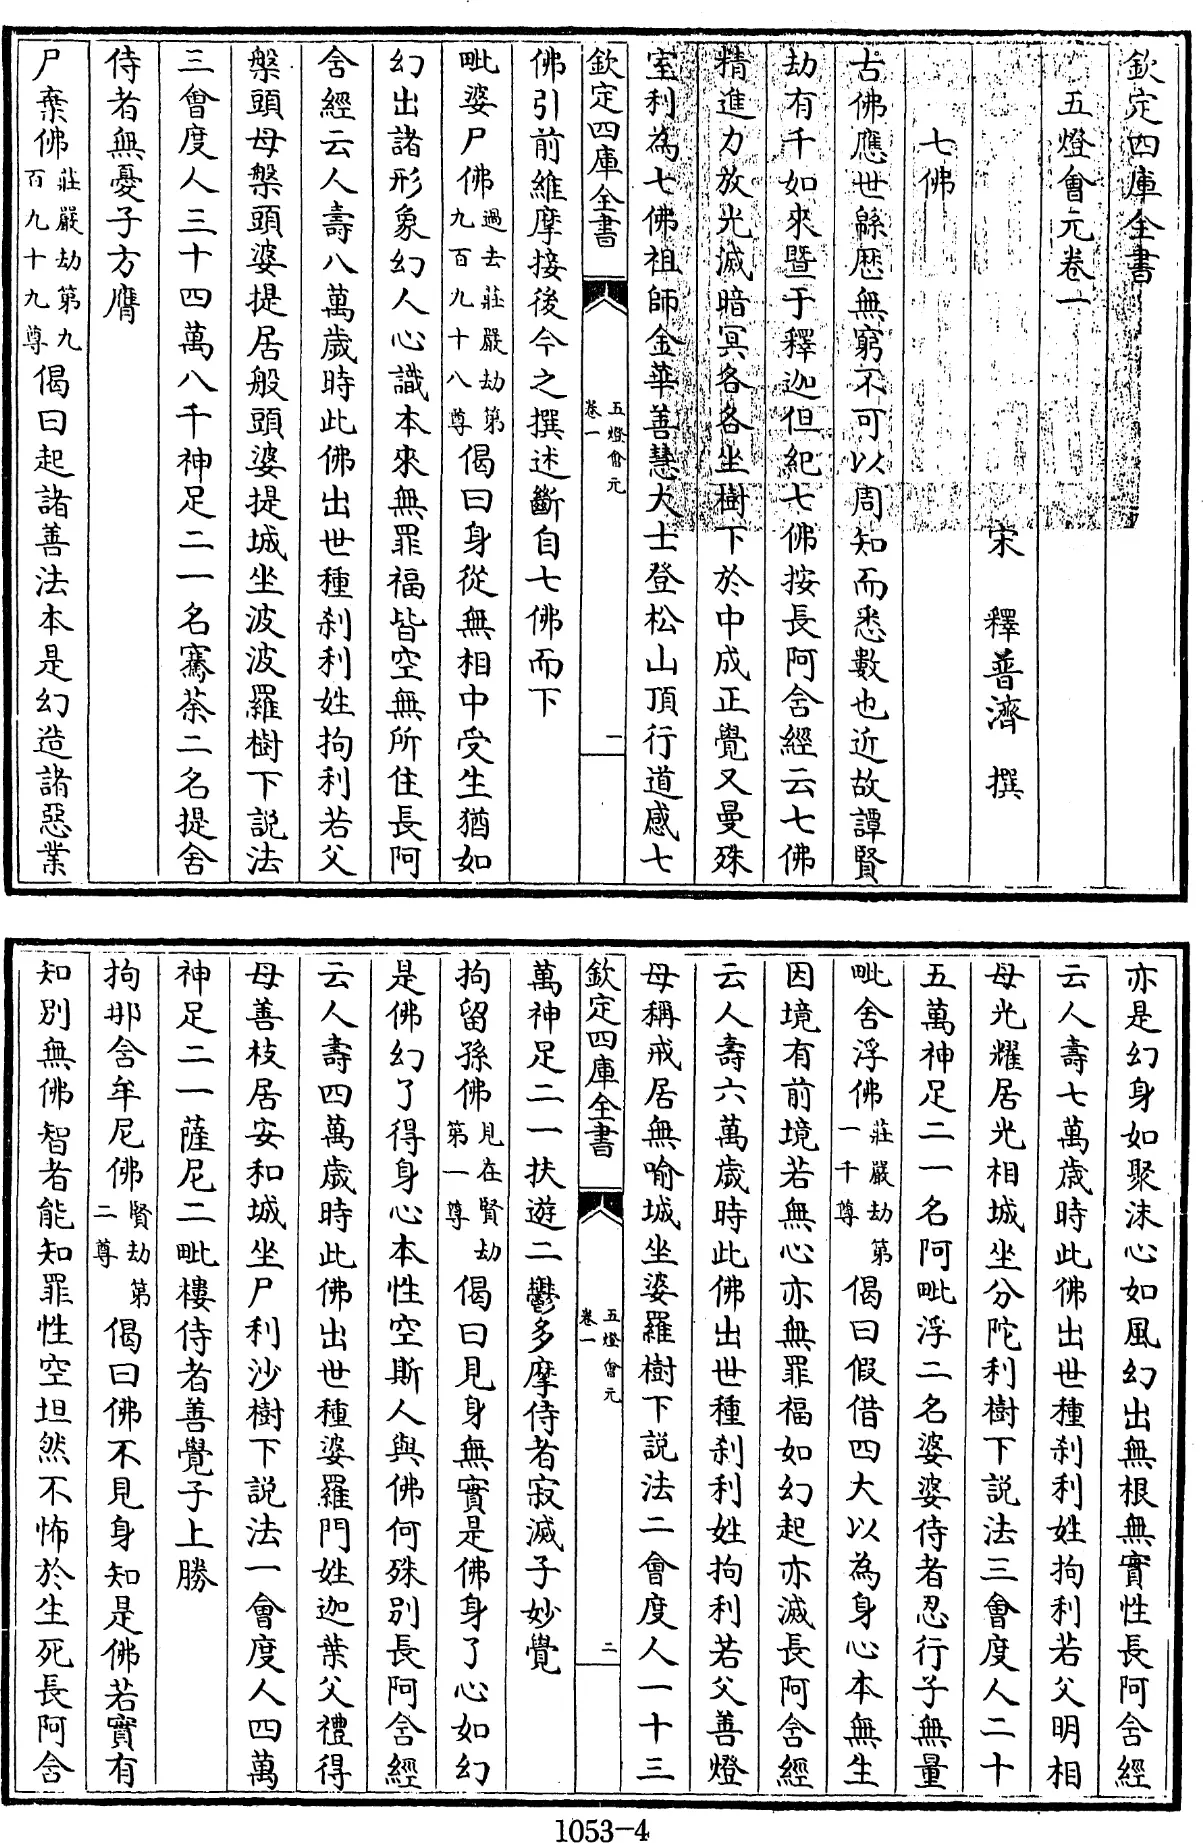 欽定四庫全書
五燈會元卷一
宋 釋普濟 撰
七佛
古佛應世緜歴無窮不可以周知而悉數也近故譚賢
劫有千如來暨于釋迦但紀七佛按長阿含經云七佛
精進力放光滅暗冥各各坐樹下於中成正覺又曼殊
室利為七佛祖師金華善慧大士登松山頂行道感七
欽定四庫全書
五燈會元
卷一
一
佛引前維摩接後今之撰述斷自七佛而下
毗婆尸佛過去莊嚴劫第九百九十八尊偈曰身從無相中受生猶如
幻出諸形象幻人心識本來無罪福皆空無所住長阿
含經云人壽八萬歲時此佛出世種刹利姓拘利若父
槃頭母槃頭婆提居般頭婆提城坐波波羅樹下説法
三會度人三十四萬八千神足二一名騫荼二名提舍
侍者無憂子方膺
尸棄佛莊嚴劫第九百九十九尊偈曰起諸善法本是幻造諸惡業
亦是幻身如聚沫心如風幻出無根無實性長阿含經
云人壽七萬歲時此佛出世種刹利姓拘利若父明相
母光耀居光相城坐分陀利樹下説法三會度人二十
五萬神足二一名阿毗浮二名婆婆侍者忍行子無量
毗舍浮佛莊嚴劫第一千尊偈曰假借四大以為身心本無生
因境有前境若無心亦無罪福如幻起亦滅長阿含經
云人壽六萬歲時此佛出世種刹利姓拘利若父善燈
母稱戒居無喻城坐婆羅樹下説法二會度人一十三
欽定四庫全書
五燈會元
卷一
二
萬神足二一扶遊二鬱多摩侍者寂滅子妙覺
拘留孫佛見在賢劫第一尊偈曰見身無實是佛身了心如幻
是佛幻了得身心本性空斯人與佛何殊别長阿含經
云人壽四萬歲時此佛出世種婆羅門姓迦葉父禮得
母善枝居安和城坐尸利沙樹下説法一會度人四萬
神足二一薩尼二毗樓侍者善覺子上勝
拘那含牟尼佛賢劫第二尊偈曰佛不見身知是佛若實有
知别無佛智者能知罪性空坦然不怖於生死長阿含
1053-4